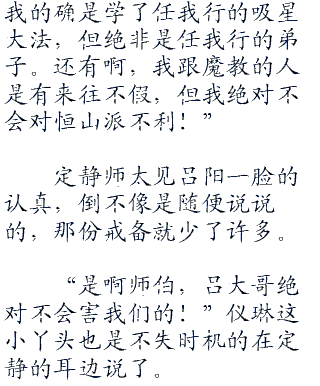 我的确是学了任我行的吸星
大法，但绝非是任我行的弟
子。还有啊，我跟魔教的人
是有来往不假，但我绝对不
会对恒山派不利！”
定静师太见吕阳一脸的
认真，倒不像是随便说说
的，那份戒备就少了许多。
“是啊师伯，吕大哥绝
对不会害我们的！”仪琳这
小丫头也是不失时机的在定
静的耳边说了。